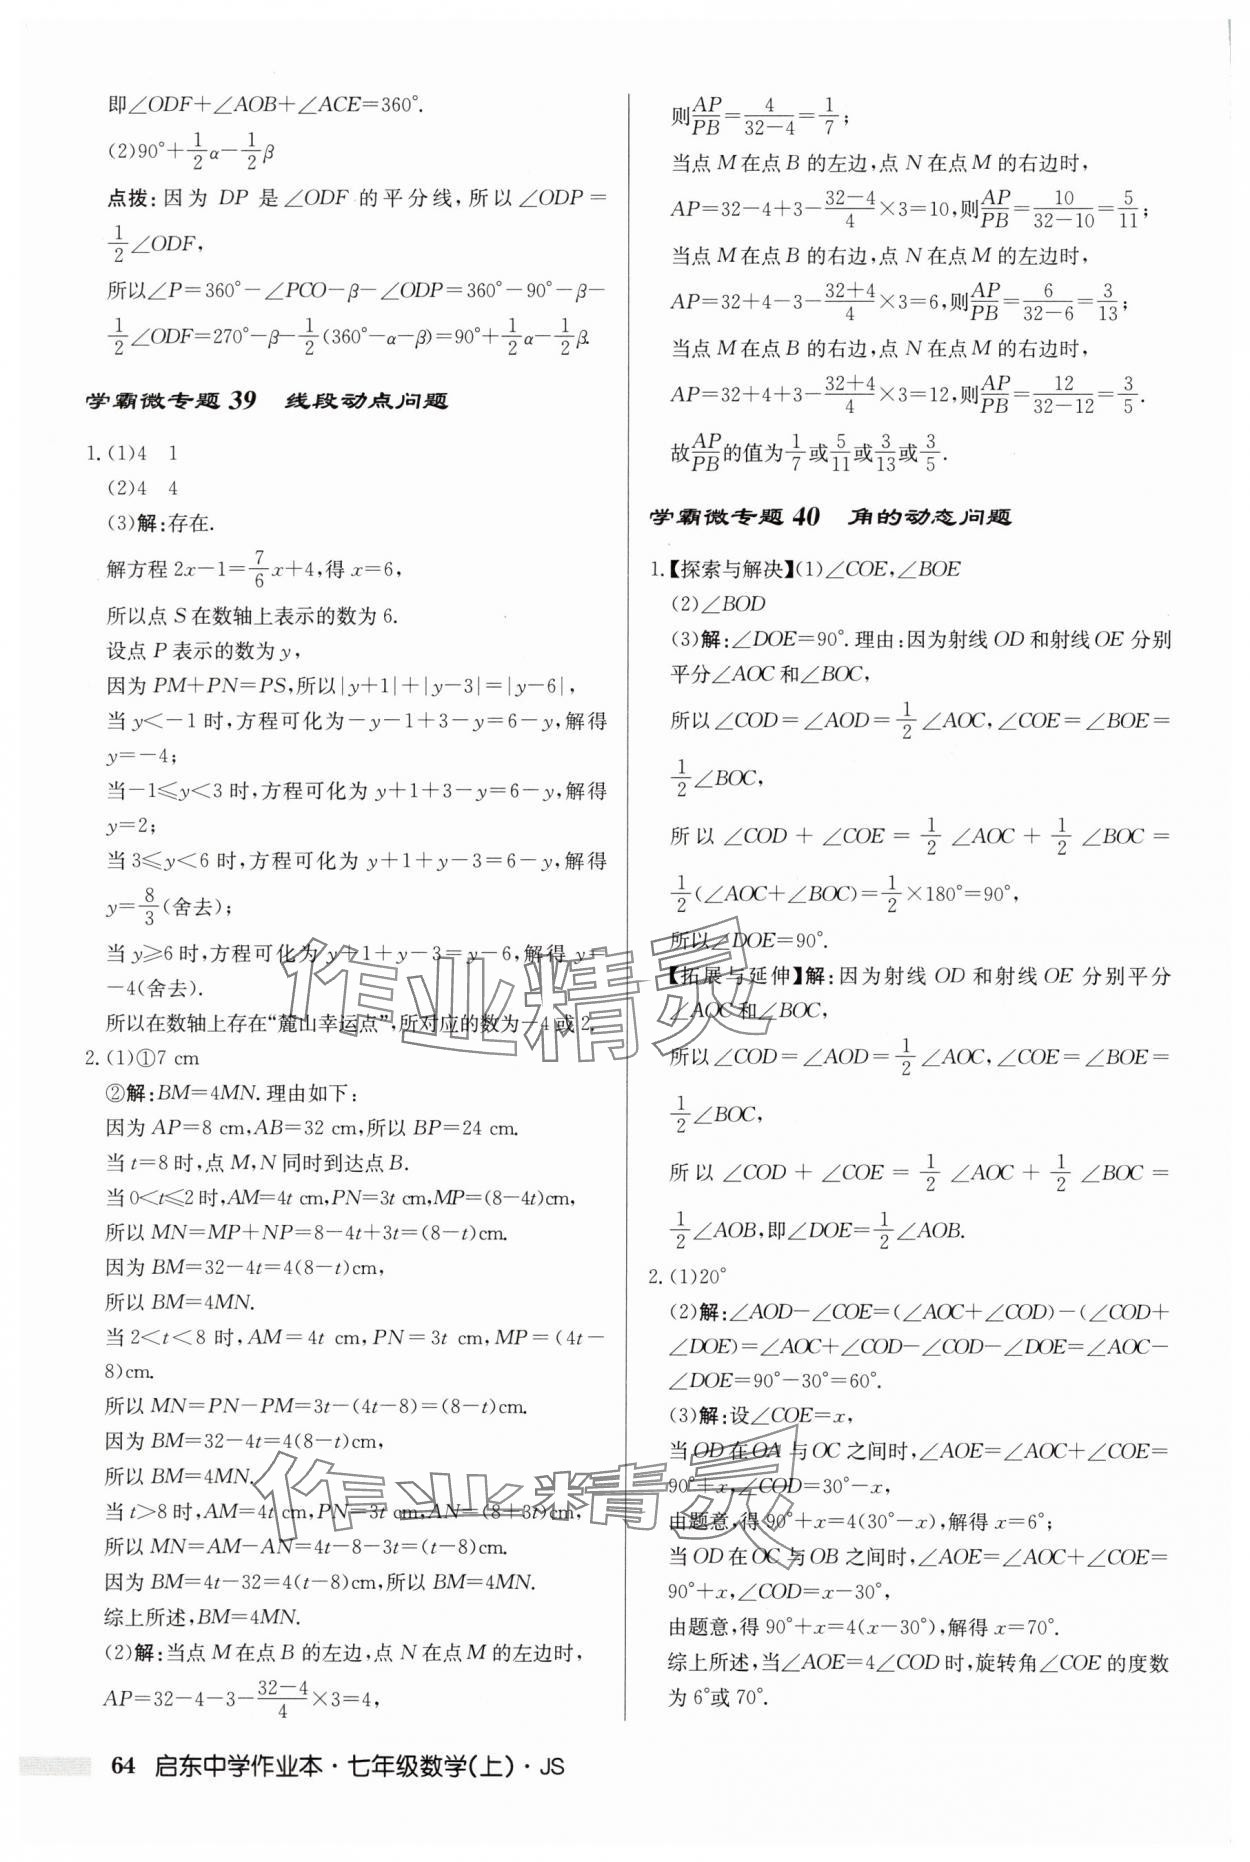 即∠ODF+∠AOB+∠ACE=360°.
(2)90°+1/2α-1/2β
点拨:因为 DP 是∠ODF 的平分线,所以∠ODP=
1/2∠ODF,
所以∠P=360°-∠PCO-β-∠ODP=360°-90°-β-
1/2∠ODF=270°-β-1/2(360°-α-β)=90°+1/2α-1/2β.
学霸微专题 39 线段动点问题
1. (1)4 1
(2)4 4
(3)解:存在.
解方程 2x-1=7/6x+4,得 x=6,
所以点 S 在数轴上表示的数为 6.
设点 P 表示的数为 y,
因为 PM+PN=PS,所以|y+1|+|y-3|=|y-6|,
当 y<-1 时,方程可化为-y-1+3-y=6-y,解得
y=-4;
当-1≤y<3 时,方程可化为 y+1+3-y=6-y,解得
y=2;
当 3≤y<6 时,方程可化为 y+1+y-3=6-y,解得
y=8/3(舍去);
当 y≥6 时,方程可化为 y+1+y-3=y-6,解得 y=
-4(舍去).
所以在数轴上存在“麓山幸运点”,所对应的数为-4 或 2.
2. (1)①7 cm
②解:BM=4MN. 理由如下:
因为 AP=8 cm,AB=32 cm,所以 BP=24 cm.
当 t=8 时,点 M,N 同时到达点 B.
当 0<t≤2 时,AM=4t cm,PN=3t cm,MP=(8-4t)cm,
所以 MN=MP+NP=8-4t+3t=(8-t)cm.
因为 BM=32-4t=4(8-t)cm,
所以 BM=4MN.
当 2<t<8 时,AM=4t cm,PN=3t cm,MP=(4t-
8)cm.
所以 MN=PN-PM=3t-(4t-8)=(8-t)cm.
因为 BM=32-4t=4(8-t)cm,
所以 BM=4MN.
当 t>8 时,AM=4t cm,PN=3t cm,AN=(8+3t)cm,
所以 MN=AM-AN=4t-8-3t=(t-8)cm.
因为 BM=4t-32=4(t-8)cm,所以 BM=4MN.
综上所述,BM=4MN.
(2)解:当点 M 在点 B 的左边,点 N 在点 M 的左边时,
AP=32-4-3-(32-4)/4×3=4,
则AP/PB=4/(32-4)=1/7;
当点 M 在点 B 的左边,点 N 在点 M 的右边时,
AP=32-4+3-(32-4)/4×3=10,则AP/PB=10/(32-10)=5/11;
当点 M 在点 B 的右边,点 N 在点 M 的左边时,
AP=32+4-3-(32+4)/4×3=6,则AP/PB=6/(32-6)=3/13;
当点 M 在点 B 的右边,点 N 在点 M 的右边时,
AP=32+4+3-(32+4)/4×3=12,则AP/PB=12/(32-12)=3/5.
故AP/PB的值为1/7或5/11或3/13或3/5.
学霸微专题 40 角的动态问题
1.【探索与解决】(1)∠COE,∠BOE
(2)∠BOD
(3)解:∠DOE=90°. 理由:因为射线 OD 和射线 OE 分别
平分∠AOC 和∠BOC,
所以∠COD=∠AOD=1/2∠AOC,∠COE=∠BOE=
1/2∠BOC,
所以∠COD+∠COE=1/2∠AOC+1/2∠BOC=
1/2(∠AOC+∠BOC)=1/2×180°=90°,
所以∠DOE=90°.
【拓展与延伸】解:因为射线 OD 和射线 OE 分别平分
∠AOC 和∠BOC,
所以∠COD=∠AOD=1/2∠AOC,∠COE=∠BOE=
1/2∠BOC,
所以∠COD+∠COE=1/2∠AOC+1/2∠BOC=
1/2∠AOB,即∠DOE=1/2∠AOB.
2. (1)20°
(2)解:∠AOD-∠COE=(∠AOC+∠COD)-(∠COD+
∠DOE)=∠AOC+∠COD-∠COD-∠DOE=∠AOC-
∠DOE=90°-30°=60°.
(3)解:设∠COE=x,
当 OD 在 OA 与 OC 之间时,∠AOE=∠AOC+∠COE=
90°+x,∠COD=30°-x,
由题意,得 90°+x=4(30°-x),解得 x=6°;
当 OD 在 OC 与 OB 之间时,∠AOE=∠AOC+∠COE=
90°+x,∠COD=x-30°,
由题意,得 90°+x=4(x-30°),解得 x=70°.
综上所述,当∠AOE=4∠COD 时,旋转角∠COE 的度数
为 6°或 70°.
作业精灵
作业精灵
64 启东中学作业本·七年级数学(上)·JS